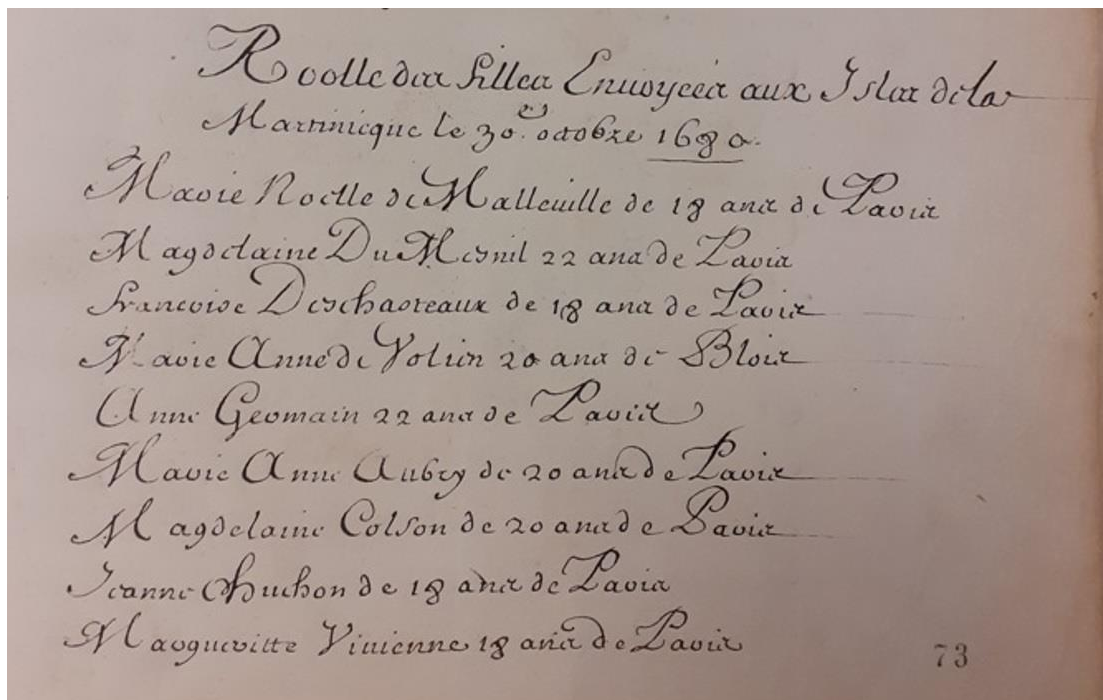 Roolle des filles Envoyées aux Isles de la
Martinicque le 30.e octobre 1680.
Marie Noelle de Malleuille de 18 ans de Paris
Magdelaine Du Mesnil 22 ans de Paris
francoise Deschasteaux de 18 ans de Paris
Marie Anne de Volien 20 ans de Blois
Anne Germain 22 ans de Paris
Marie Anne Aubry de 20 ans de Paris
Magdelaine Colson de 20 ans de Paris
Jeanne Huchon de 18 ans de Paris
Margueritte Vivienne 18 ans de Paris
73